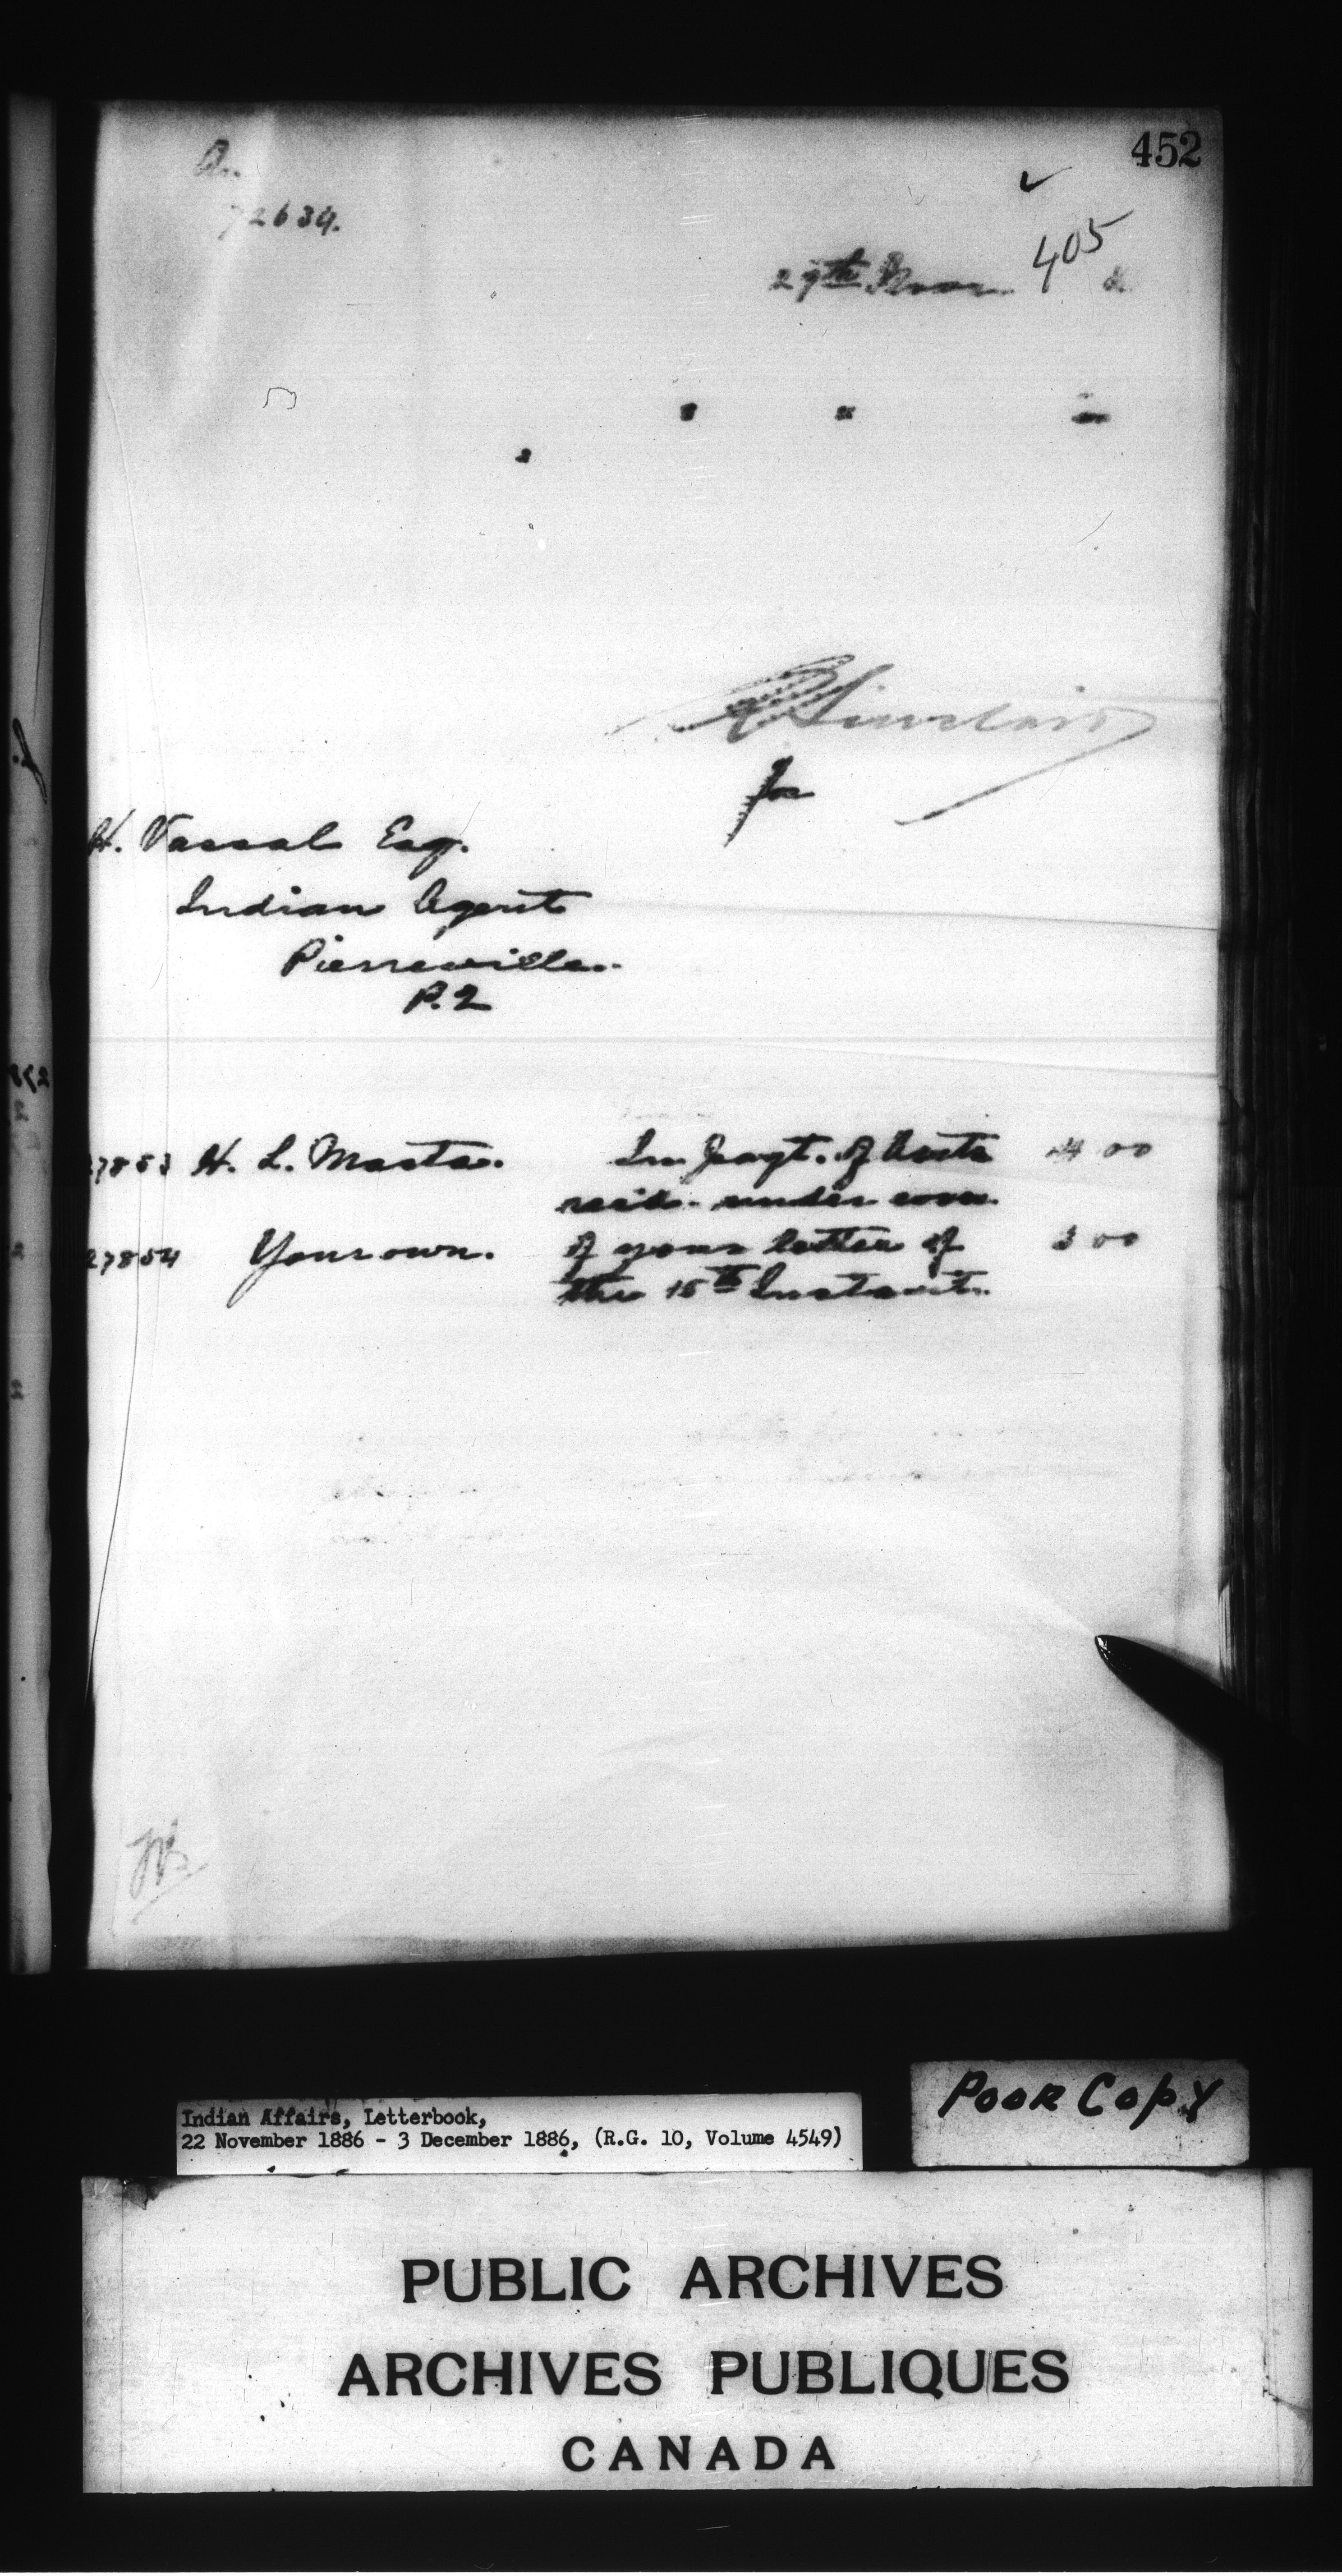 452
72634.
405
29th Nov
R Sinclair
for
H. Vassal Esq.
Indian Agent
Pierreville.
P. Q
27853 H. L. Masta. In payt. of Accts 4 00
recd. under cover
27854 Your own. of your letter of 3 00
the 15th Instant.
Indian Affairs, Letterbook,
22 November 1886 - 3 December 1886, (R.G. 10, Volume 4549)
Poor Copy
PUBLIC ARCHIVES
ARCHIVES PUBLIQUES
CANADA